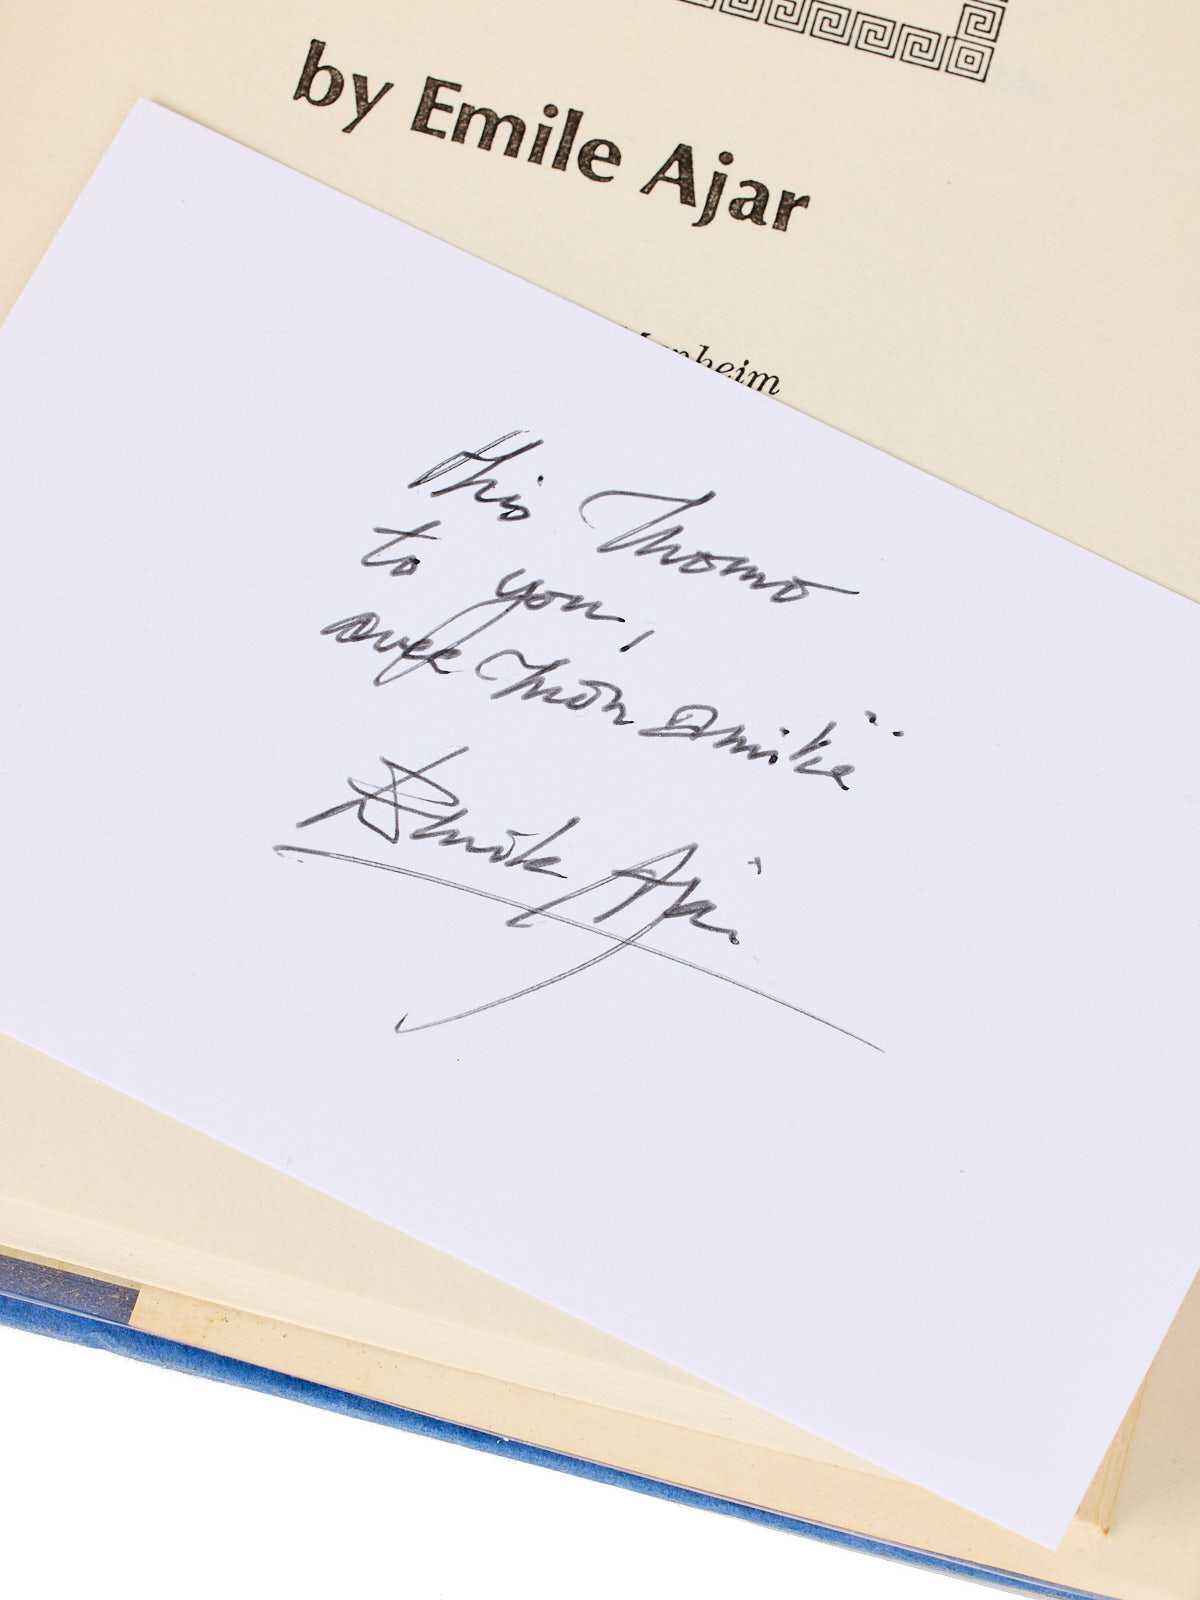 by Emile Ajar
Manheim
this Momo
to you,
avec mon amitié
Emile Ajar